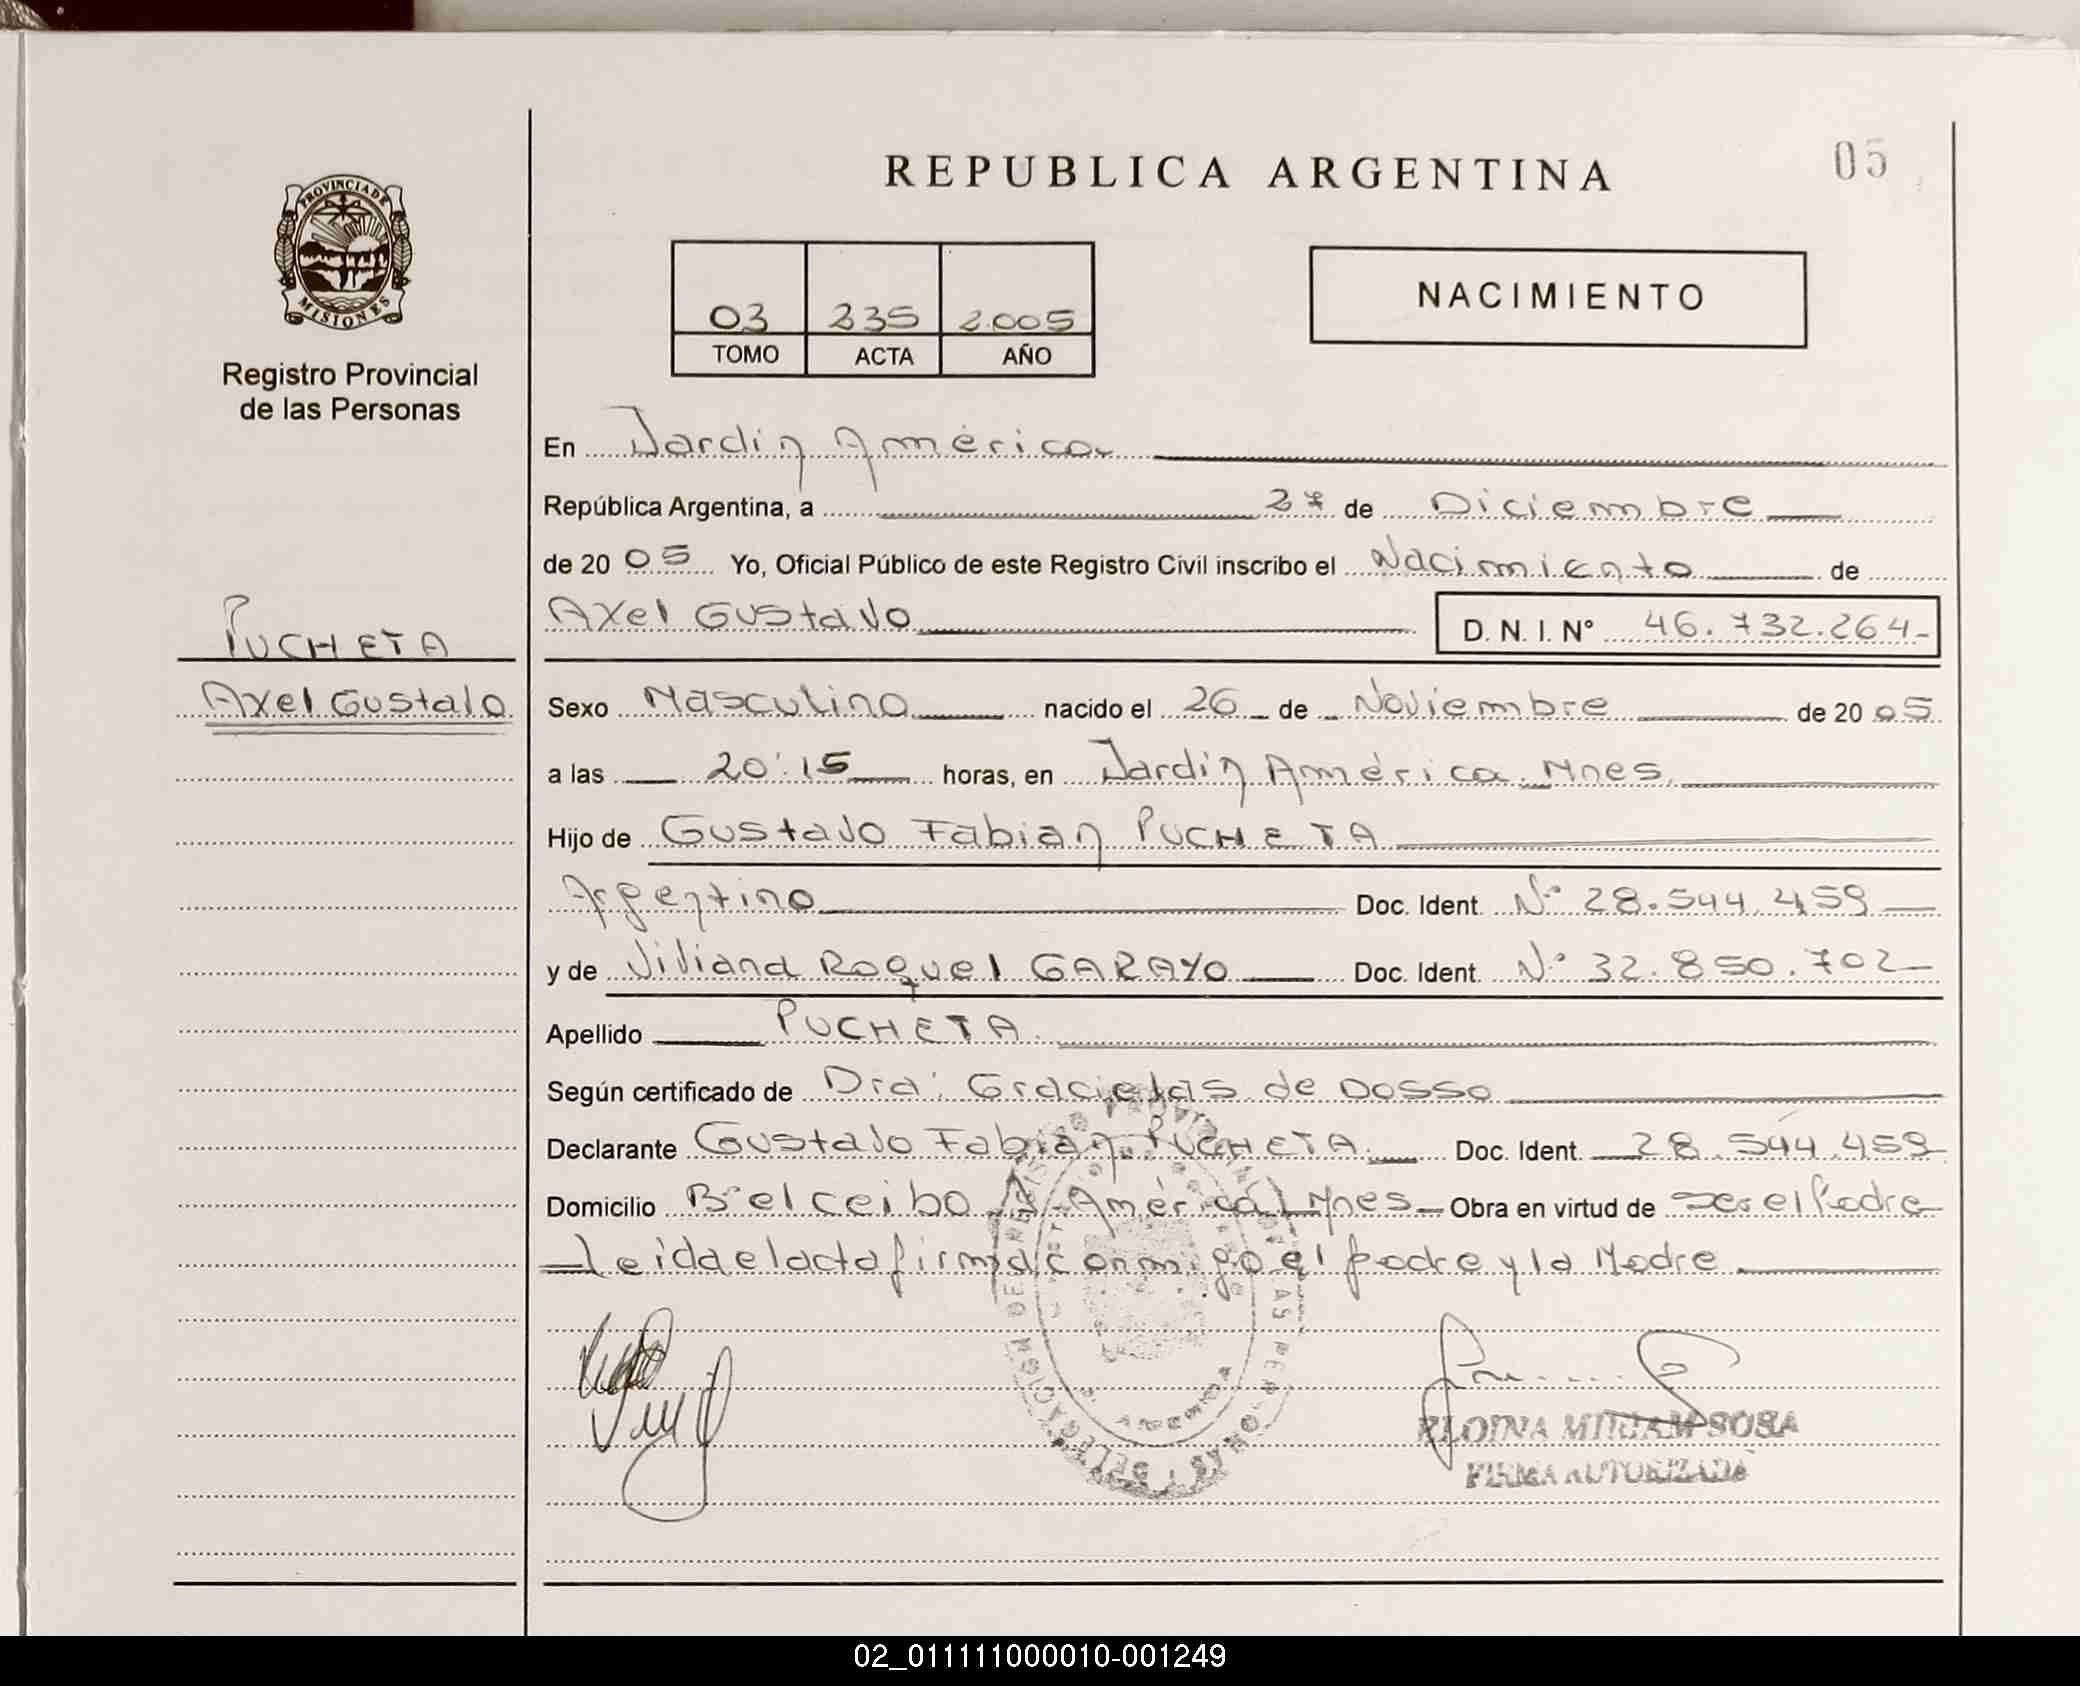 REPUBLICA ARGENTINA
05
PROVINCIA DE
MISIONES
Registro Provincial
de las Personas
03 235 2.005
TOMO ACTA AÑO
NACIMIENTO
En Jardin América
República Argentina, a 27 de Diciembre
de 20 05 Yo, Oficial Público de este Registro Civil inscribo el Nacimiento de
Axel Gustavo D. N. I. N° 46.732.264-
PUCHETA
Axel Gustavo
Sexo Masculino nacido el 26 de Noviembre de 20 05
a las 20:15 horas, en Jardin América. Mnes.
Hijo de Gustavo Fabian PUCHETA
Argentino Doc. Ident. N° 28.544.459
y de Viviana Raquel GARAYO Doc. Ident. N° 32.850.702
Apellido PUCHETA
Según certificado de Dra: Graciela S. de Dosso
Declarante Gustavo Fabian PUCHETA Doc. Ident. 28.544.459
Domicilio B° el ceibo J. América Mnes Obra en virtud de ser el Padre
Leida el acta firma conmigo el padre y la Madre
MIRIAM SOSA
FIRMA AUTORIZADA
02_011111000010-001249